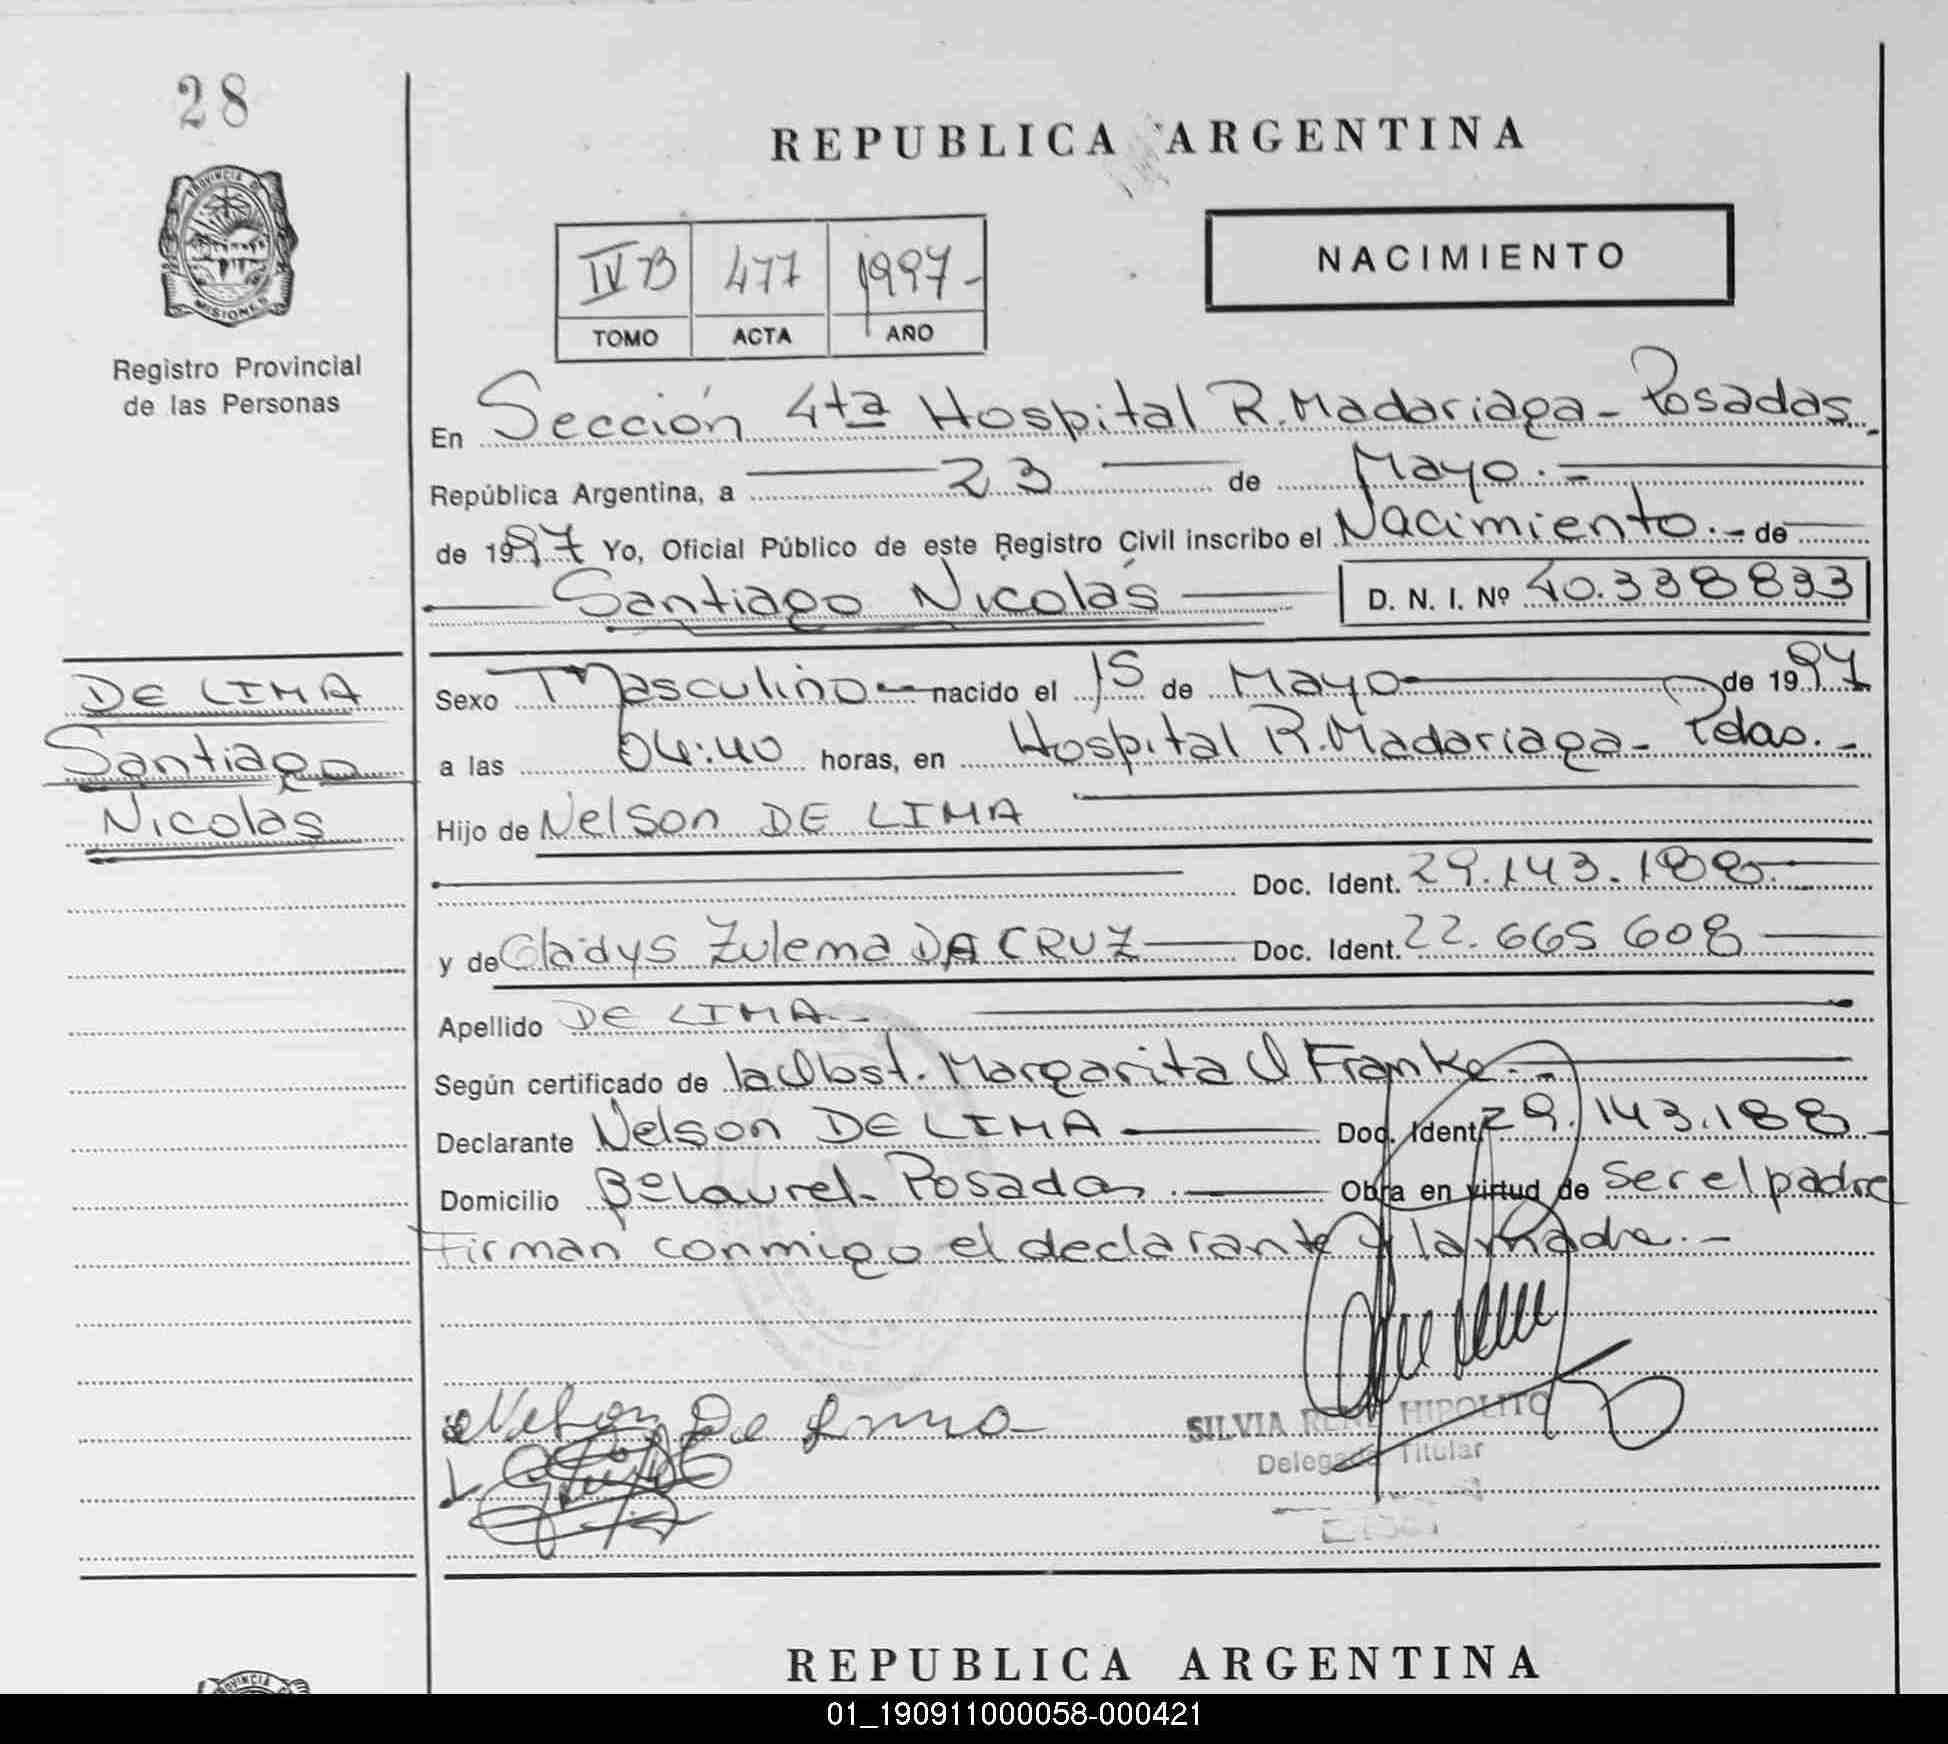 28
REPUBLICA ARGENTINA
PROVINCIA D
MISIONES
IV B 477 1997-
TOMO ACTA AÑO
NACIMIENTO
Registro Provincial
de las Personas
En Sección 4ta Hospital R. Madariaga - Posadas.
República Argentina, a 23 de Mayo.-
de 1997 Yo, Oficial Público de este Registro Civil inscribo el Nacimiento.- de
Santiago Nicolás D. N. I. Nº 40.338833
DE LIMA
Santiago
Nicolas
Sexo Masculino nacido el 15 de Mayo de 1997
a las 04:40 horas, en Hospital R. Madariaga - Pdas.-
Hijo de Nelson DE LIMA
Doc. Ident. 29.143.188.
y de Gladys Zulema DA CRUZ Doc. Ident. 22.665 608
Apellido DE LIMA.-
Según certificado de la Obst. Margarita O Franke.-
Declarante Nelson DE LIMA Doc. Ident. 29.143.188
Domicilio Bº Laurel - Posadas. Obra en virtud de ser el padre
Firman conmigo el declarante y la Madre.-
Nelson De Lima
SILVIA HIPOLITO
Delegada Titular
REPUBLICA ARGENTINA
01_190911000058-000421